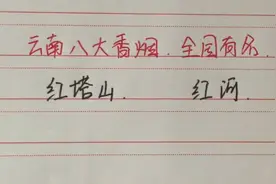 云南八大香烟.全国有名.
红塔山. 红河.